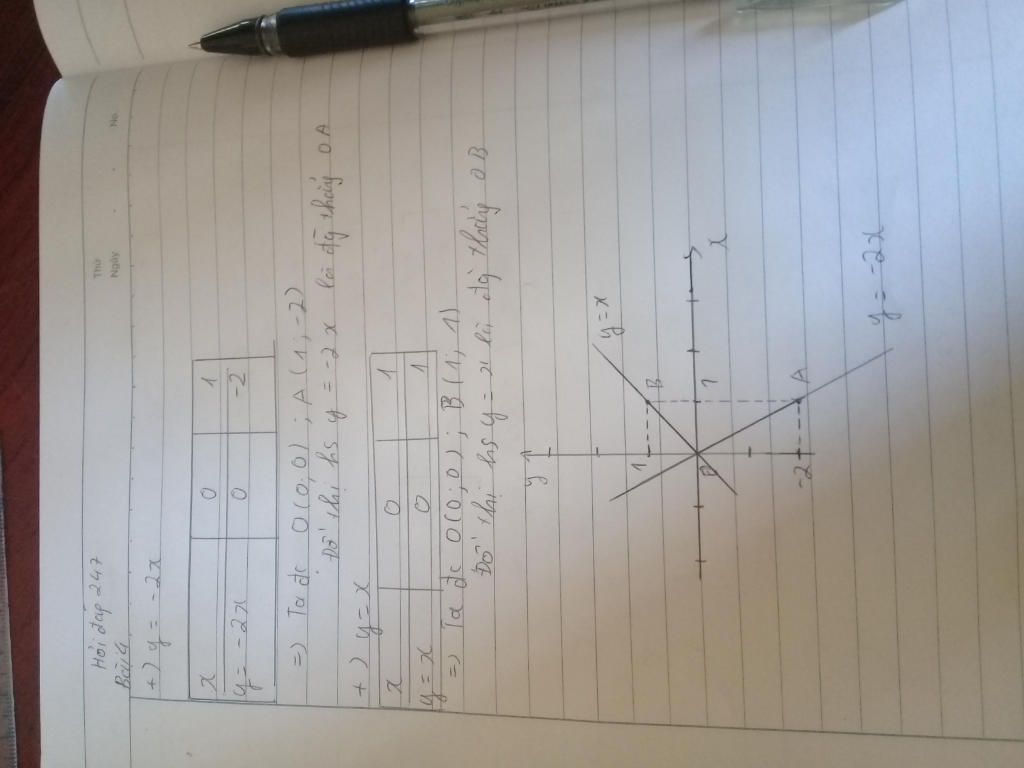 Thứ
Ngày
No.
Hỏi đáp 247
Bài 4
+) y = -2x
x 0 1
y = -2x 0 -2
=) Ta đc O(0;0) ; A(1;-2)
Đồ thị hs y = -2x là đg thẳng OA
+) y = x
x 0 1
y = x 0 1
=) Ta đc O(0;0) ; B(1;1)
Đồ thị hs y = x là đg thẳng OB
y
y = x
1
B
O
1
x
-2
A
y = -2x